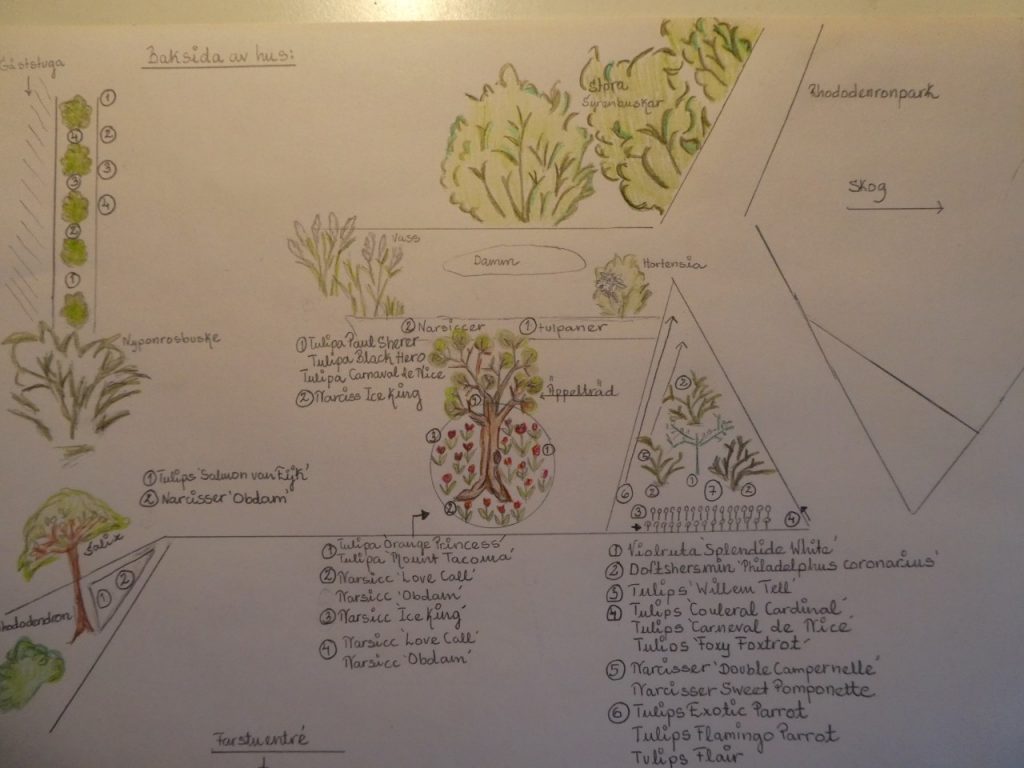 Gäststuga
Baksida av hus:
1
2
3
4
4
3
2
1
Stora
Syrenbuskar
Rhododenronpark
Skog
Vass
Damm
Hortensia
Nyponrosbuske
② Narsiccer
① tulpaner
① Tulipa Paul Sherer
Tulipa Black Hero
Tulipa Carnaval de Nice
② Narciss Ice King
Äppelträd
1
3
1
2
2
5
1
6
2
7
2
3
4
① Tulips 'Salmon van Eijk'
② Narcisser 'Obdam'
Salix
1
2
Rhododendron
① Tulipa Orange Princess'
Tulipa 'Mount Tacoma'
② Narsicc 'Love Call'
Narsicc 'Obdam'
③ Narsicc 'Ice King'
④ Narsicc 'Love Call'
Narsicc 'Obdam'
① Violruta 'Splendide White'
② Doftshersmin 'Philadelphus coronarius'
③ Tulips 'Willem Tell'
④ Tulips 'Couleral Cardinal'
Tulips 'Carneval de Nice'
Tulios 'Foxy Foxtrot'
⑤ Narcisser 'Double Campernelle'
Narcisser Sweet Pomponette
⑥ Tulips Exotic Parrot
Tulips Flamingo Parrot
Tulips Flair
Farstuentré